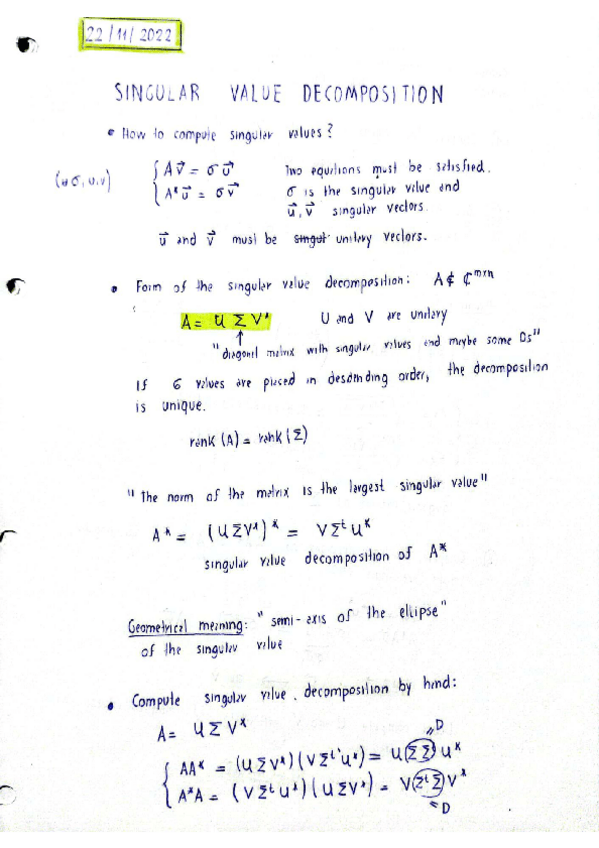 22/11/2022
SINGULAR VALUE DECOMPOSITION
• How to compute singular values?
(σ, u, v) { A v⃗ = σ u⃗ Two equations must be satisfied.
A* u⃗ = σ v⃗ σ is the singular value and
u⃗, v⃗ singular vectors.
u⃗ and v⃗ must be singul unitary vectors.
• Form of the singular value decomposition: A ∈ ℂ^{m×n}
A = U Σ V* U and V are unitary
↑
"diagonal matrix with singular values and maybe some 0s"
If σ values are placed in desdending order, the decomposition
is unique.
rank (A) = rank (Σ)
"The norm of the matrix is the largest singular value"
A* = (U Σ V*)* = V Σ^t U*
singular value decomposition of A*
Geometrical meaning: "semi-axis of the ellipse"
of the singular value
• Compute singular value decomposition by hand:
A = U Σ V*
= D
{ AA* = (U Σ V*)(V Σ^t U*) = U (Σ Σ^t) U*
A*A = (V Σ^t U*)(U Σ V*) = V (Σ^t Σ) V*
= D